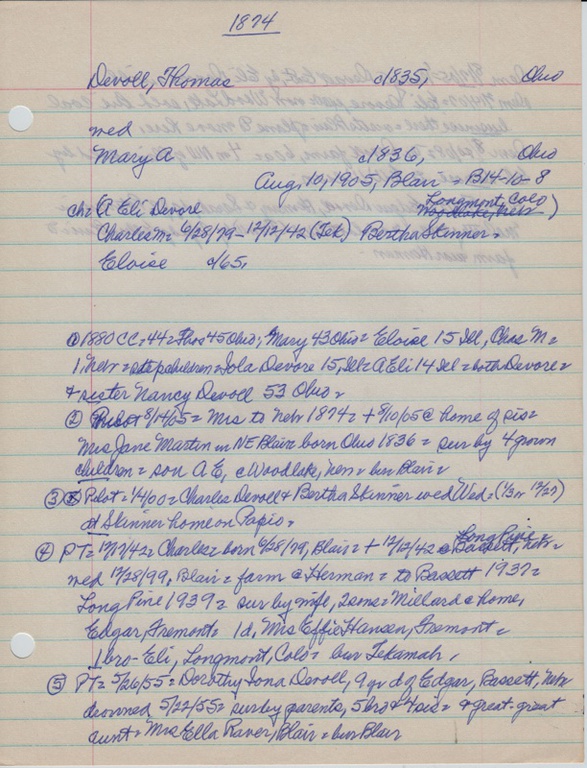 1874
Devoll, Thomas c1835, Ohio
wed
Mary A c1836, Ohio
Aug, 10, 1905, Blair = B14-10-8
Longmont, Colo
ch= A Eli Devore Woodlake, Nebr)
Charles M= 6/28/79 - 12/12/42 (Tek) Bertha Skinner =
Eloise c/65,
① 1880 CC = 44 = Thos 45 Ohio; Mary 43 Ohio = Eloise 15 Ill, Chas M =
1 Nebr = stepchildren = Iola Devore 15, Ill = A Eli 14 Ill = both Devore =
+ sister Nancy Devoll 53 Ohio =
② Pilot 8/14/05 = Mrs to Nebr 1874 = + 8/10/05 @ home of sis =
Mrs Jane Martin in NE Blair = born Ohio 1836 = sur by 4 grown
children = son A E, c Woodlake, Nebr = bur Blair =
③ Pilot = 1/4/00 = Charles Devoll & Bertha Skinner wed Wed = (1/3 or 12/27)
at Skinner home on Papio =
Long Pine =
④ PT = 12/17/42 = Charles = born 6/28/79, Blair = + 12/12/42 @ Bassett, Nebr =
wed 12/28/99, Blair = farm c Herman = to Bassett 1937 =
Long Pine 1939 = sur by wife, 2 sons = Millard c home,
Edgar, Fremont = 1d, Mrs Effie Hansen, Fremont =
1 bro - Eli, Longmont, Colo = bur Tekamah,
⑤ PT = 5/26/55 = Dorothy Iona Devoll, 9 gr d of Edgar, Bassett, Nebr
drowned 5/22/55 = sur by parents, 5 bro & 4 sis = & great-great
aunt = Mrs Ella Raver, Blair = bur Blair